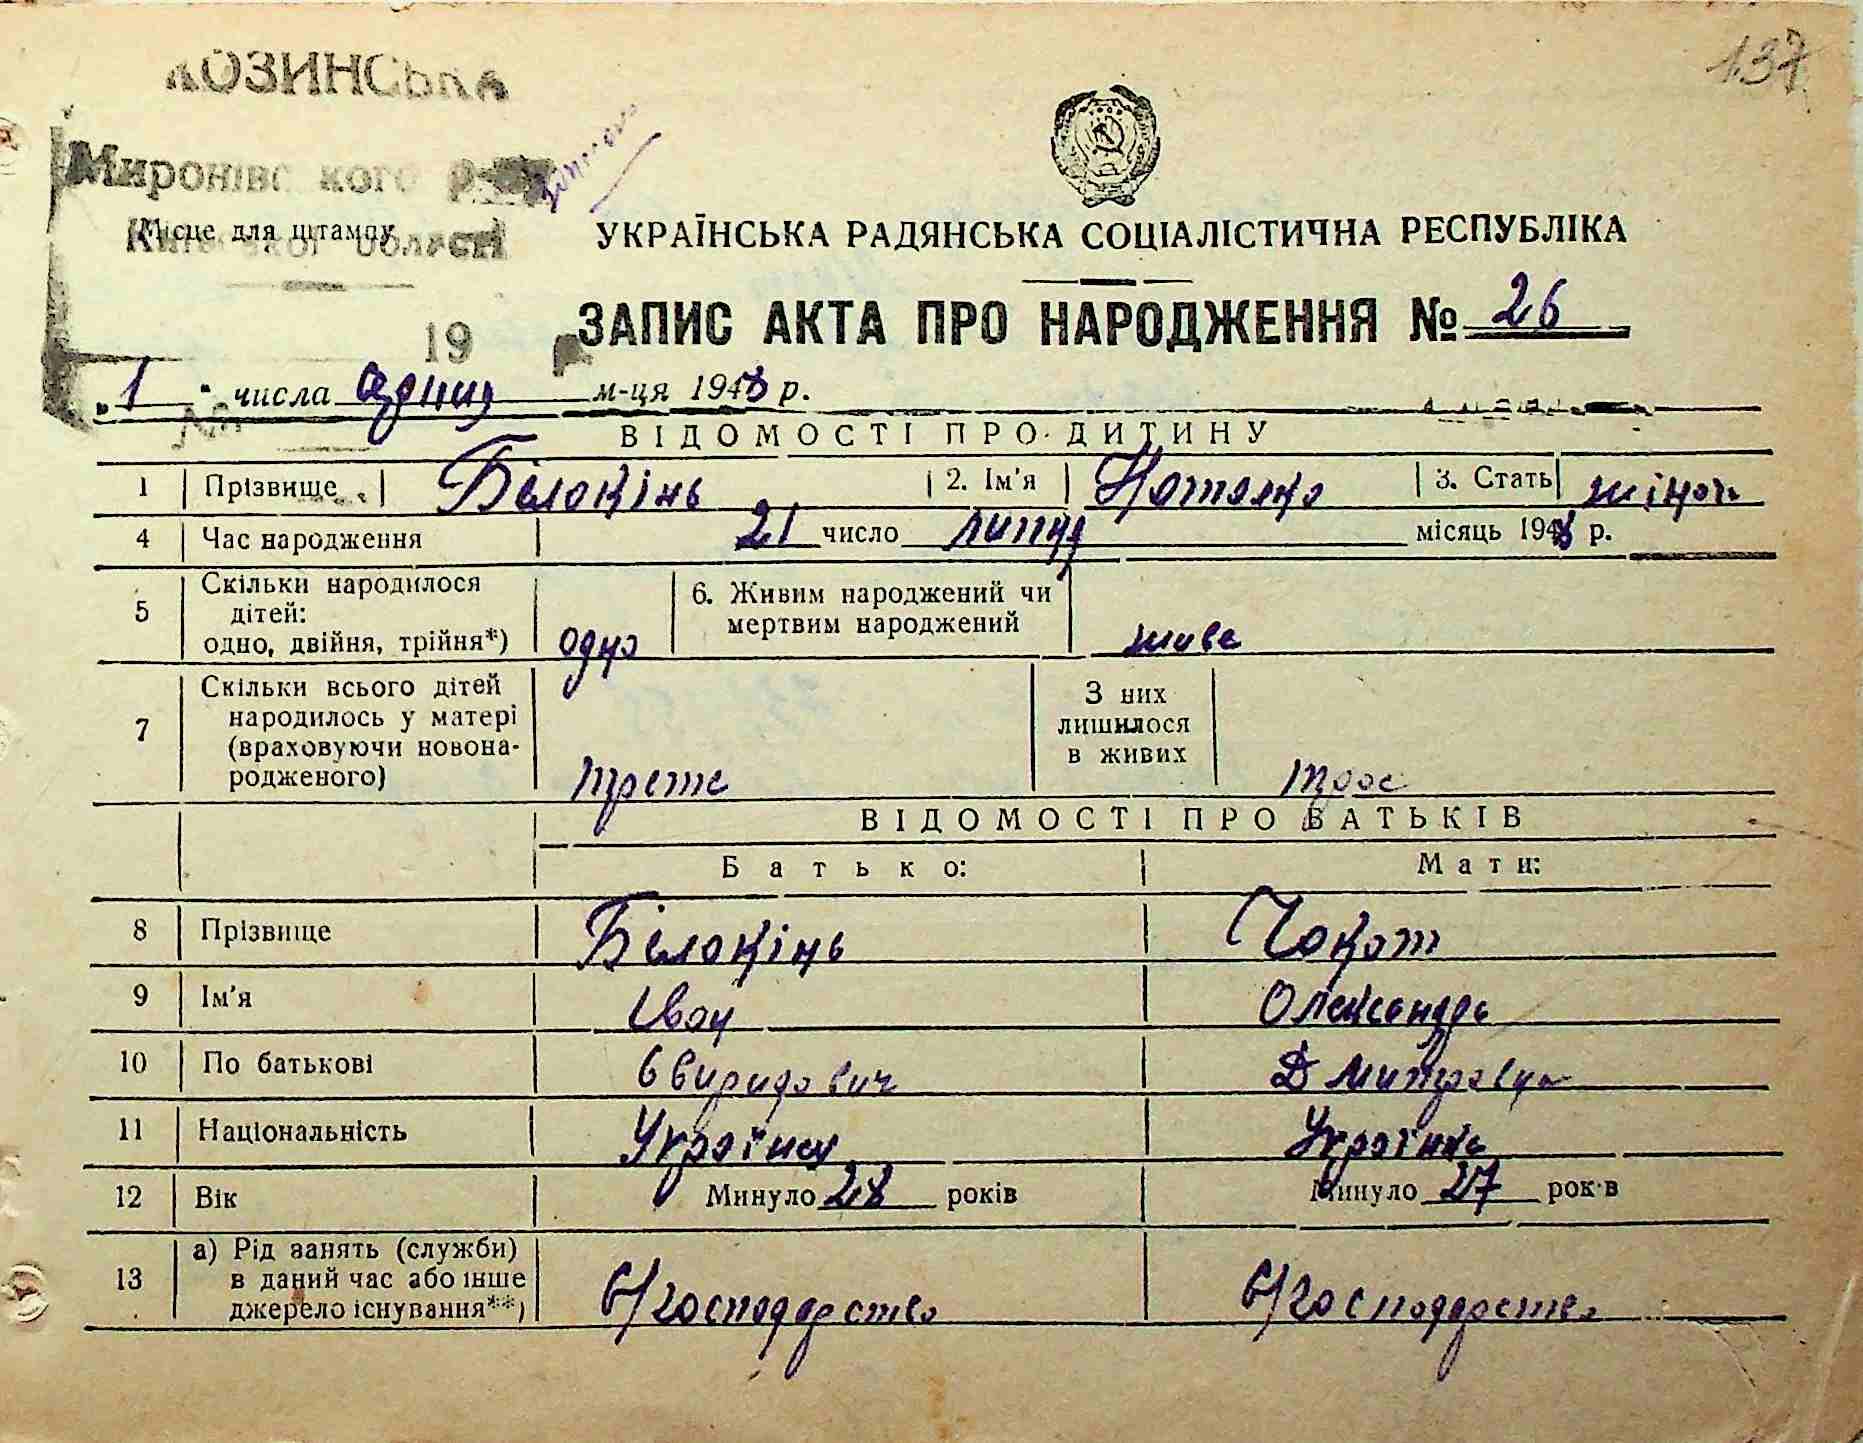 137
КОЗИНСЬКА
Миронівського р-ну
Місце для штампу
Київської області
УКРАЇНСЬКА РАДЯНСЬКА СОЦІАЛІСТИЧНА РЕСПУБЛІКА
19
ЗАПИС АКТА ПРО НАРОДЖЕННЯ № 26
„ 1 " числа серпня м-ця 1948 р.
ВІДОМОСТІ ПРО ДИТИНУ
1 Прізвище Білокінь 2. Ім'я Наталка 3. Стать жіноч
4 Час народження 21 число липня місяць 1948 р.
5 Скільки народилося дітей: одно, двійня, трійня*) одно 6. Живим народжений чи мертвим народжений живе
7 Скільки всього дітей народилось у матері (враховуючи новонародженого) третє З них лишилося в живих троє
ВІДОМОСТІ ПРО БАТЬКІВ
Батько: Мати:
8 Прізвище Білокінь Чокот
9 Ім'я Іван Олександра
10 По батькові Свиридович Дмитрівна
11 Національність Українец Українка
12 Вік Минуло 28 років Минуло 27 років
13 а) Рід занять (служби) в даний час або інше джерело існування**) С/господарство С/господарство